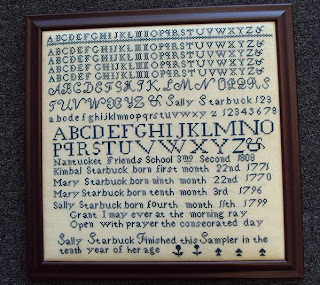 ABCDEFGHIJKLMNOPQRSTUVWXYZ&
ABCDEFGHIJKLMNOPQRSTUVWXYZ&
ABCDEFGHIJKLMNOPQRSTUVWXYZ&
ABCDEFGHIJKLMNOPQRSTUVWXYZ&
ABCDEFGHIJKLMNOPQRS
TUVWXYZ & Sally Starbuck 123
abcdefghijklmnopqrstuvwxyz 12345678
ABCDEFGHIJKLMNO
PQRSTUVWXYZ&
Nantucket Friends School 3mo Second 1808
Kimbal Starbuck born first month 22nd 1771
Mary Starbuck born ninth month 22nd 1770
Mary Starbuck born tenth month 3rd 1796
Sally Starbuck born fourth month 11th 1799
Grant I may ever at the morning ray
Open with prayer the consecrated day
Sally Starbuck Finished this Sampler in the
tenth year of her age